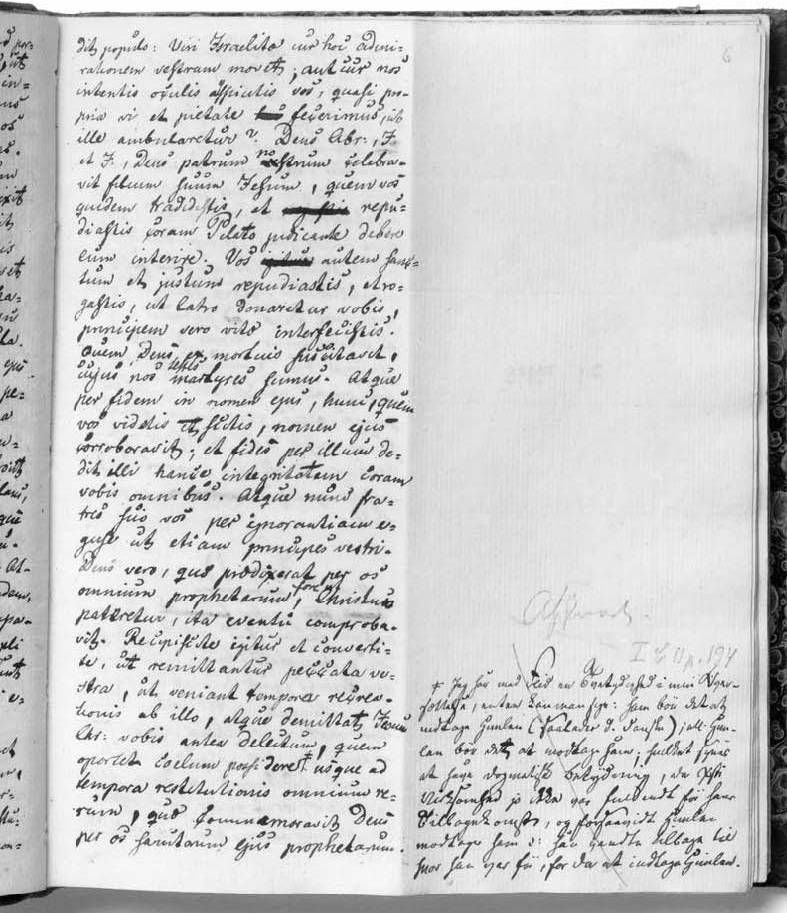 dit populo: Viri Israelitæ cur hoc admi-
rationem vestram movet, aut cur nos
intentis oculis aspicitis vos, quasi pro-
pria vi et pietate fecerimus, ut
ille ambularetur? Deus Abr:, I.
et J., Deus patrum nostrum celebra-
vit filium suum Jesum, quem vos
quidem tradidistis, et repu-
diastis coram Pilato judicante debere
eum interire. Vos autem sanc-
tum et justum repudiastis, et ro-
gastis, ut latro donaretur vobis,
principem vero vitæ interfecistis.
Quem Deus ex mortuis suscitavit,
cujus nos testes martyres sumus. Atque
per fidem in nomen ejus, hunc, quem
vos videtis et scitis, nomen ejus
corroboravit; et fides per illum de-
dit illi hance integritatem coram
vobis omnibus. Atque nunc fra-
tres scio vos per ignorantiam e-
gisse ut etiam principes vestri.
Deus vero, quæ prædixerat per os
omnium prophetarum, fore ut Christus
pateretur, ita eventu comproba-
vit. Recipiscite igitur et converti-
te, ut remittantur peccata ve-
stra, ut veniant tempora recrea-
tionis ab illo, atque demittat Jesum
Chr: vobis antea delectum, quem
oportet coelum possidere † usque ad
tempora restitutionis omnium re-
rum, quæ commemoravit Deus
per os sanctorum ejus prophetarum.
6
I C 11 p. 194
† Jeg har med Flid en Tvetydighed i min Over-
sættelse, enten kan man sige: ham bør det at
indtage Himlen (Fædrene d. Danske); all: Him-
len bør det at modtage ham; hvilket synes
at have dogmatisk Betydning, da Xsti
Virksomhed jo ikke var fuldendt før hans
Tilbagekomst, og forsaavidt Himlen
modtage ham ɔ: han vendte tilbage til
hvor han var før, for da at indtage Himlen.